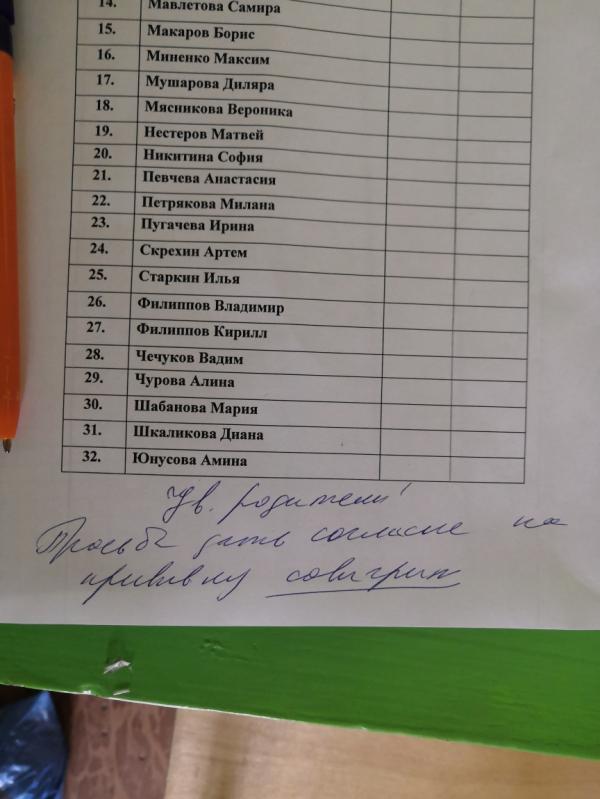 14. Мавлетова Самира
15. Макаров Борис
16. Миненко Максим
17. Мушарова Диляра
18. Мясникова Вероника
19. Нестеров Матвей
20. Никитина София
21. Певчева Анастасия
22. Петрякова Милана
23. Пугачева Ирина
24. Скрехин Артем
25. Старкин Илья
26. Филиппов Владимир
27. Филиппов Кирилл
28. Чечуков Вадим
29. Чурова Алина
30. Шабанова Мария
31. Шкаликова Диана
32. Юнусова Амина
Ув. родители!
Просьба дать согласие на
прививку совигрип